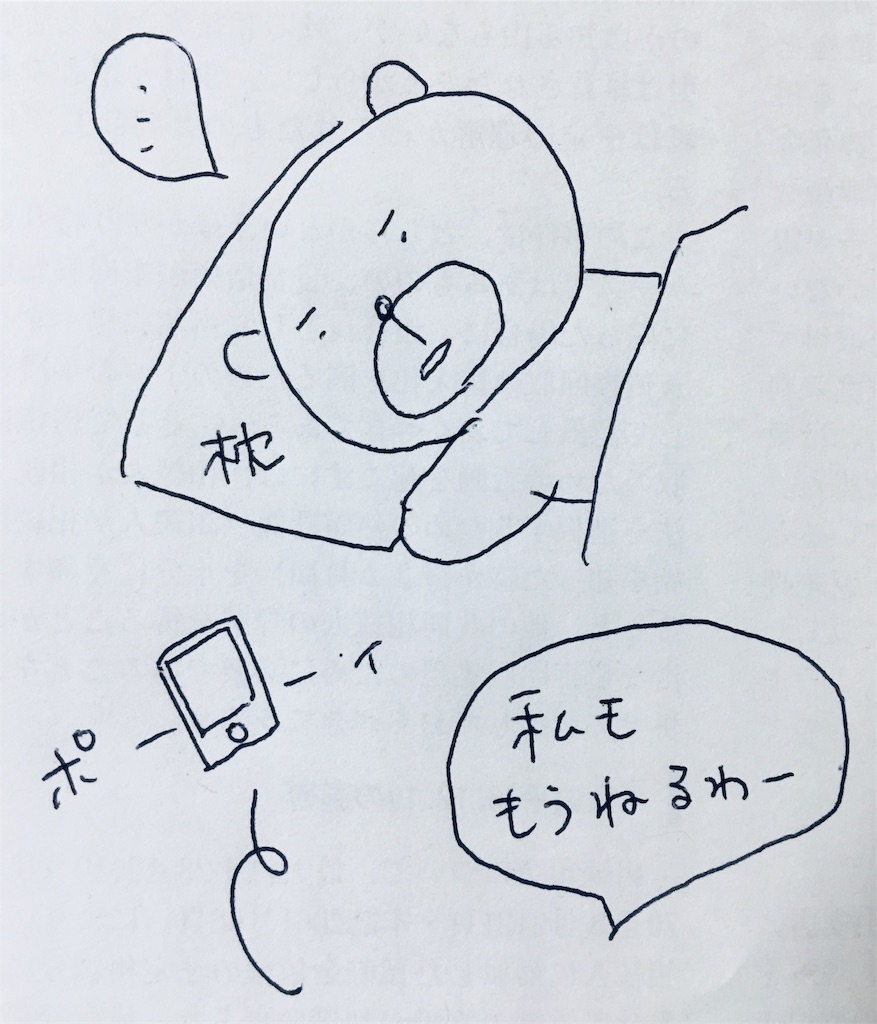 …
枕
ポーイ
私モ
もうねるわー